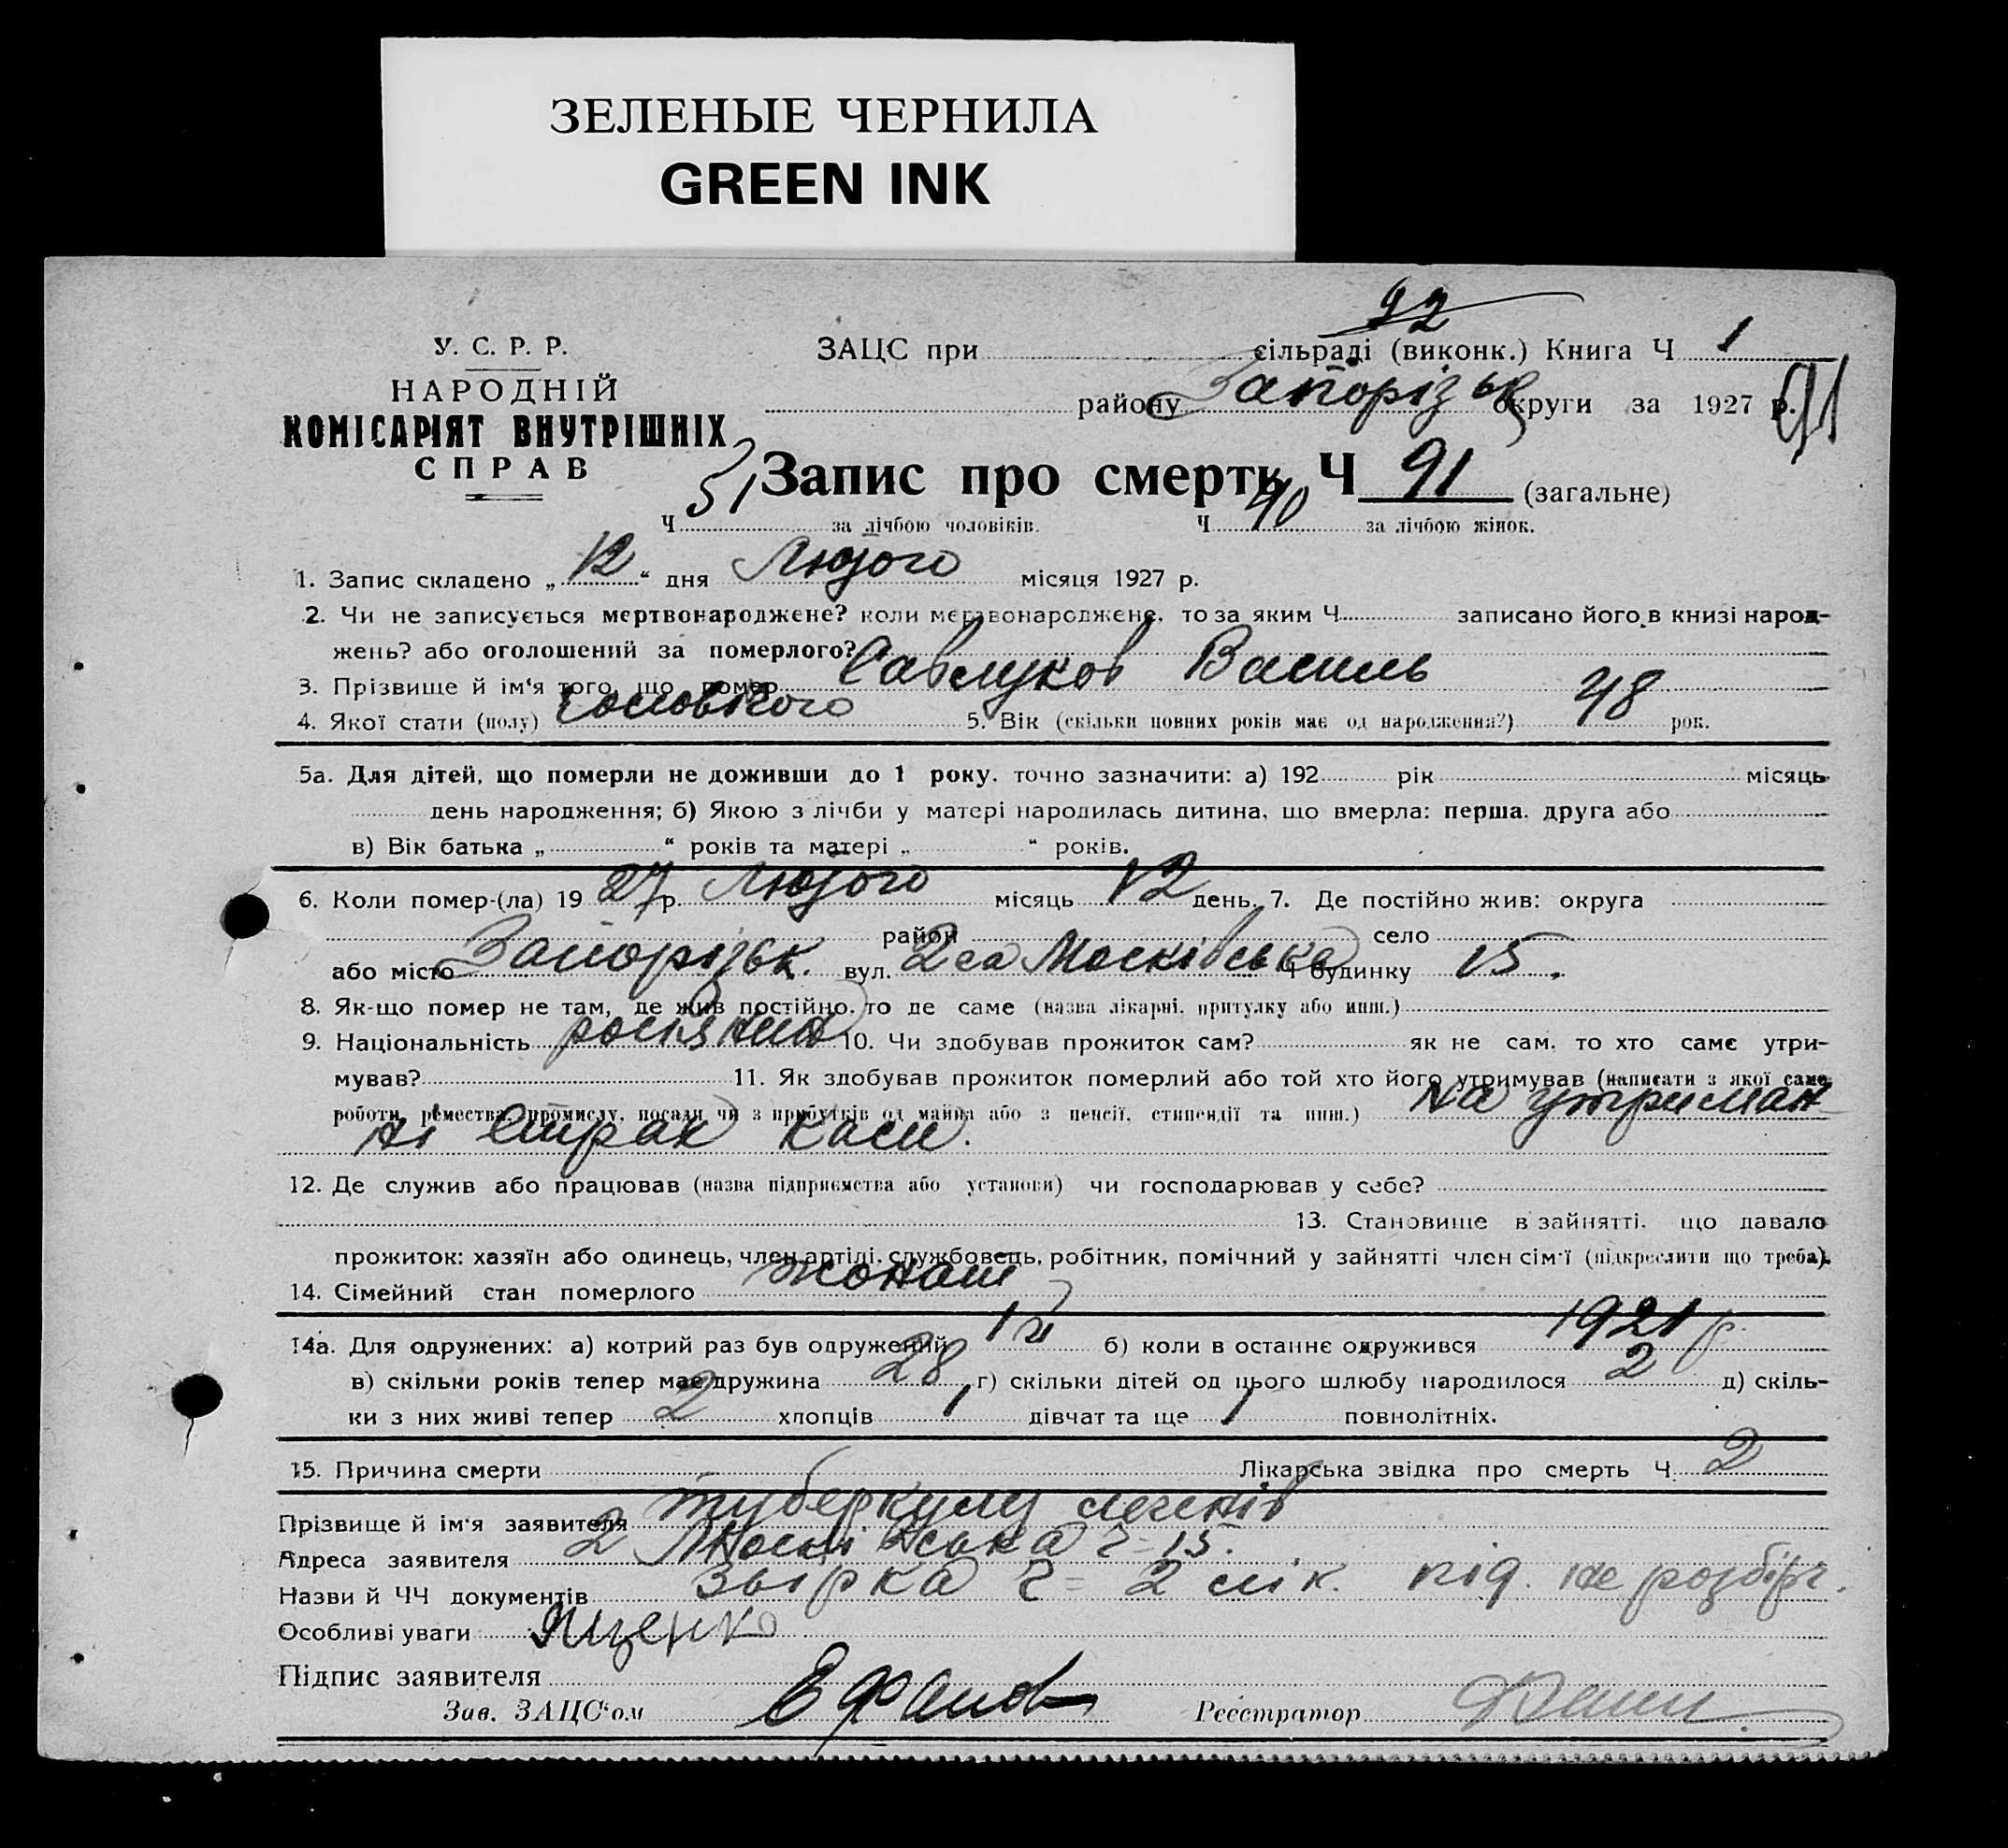 ЗЕЛЕНЫЕ ЧЕРНИЛА
GREEN INK
92
У. С. Р. Р.
НАРОДНІЙ
КОМІСАРІЯТ ВНУТРІШНІХ
СПРАВ
ЗАЦС при сільраді (виконк.) Книга Ч 1
району Запорізьк округи за 1927 р. 91
Запис про смерть Ч 91 (загальне)
Ч 51 за лічбою чоловіків. Ч 40 за лічбою жінок.
1. Запис складено „ 12 “ дня Лютого місяця 1927 р.
2. Чи не записується мертвонароджене? коли мертвонароджене, то за яким Ч записано його в книзі народ-
жень? або оголошений за померлого?
3. Прізвище й ім'я того, що помер Савлуков Василь
4. Якої стати (полу) Чоловічого 5. Вік (скільки повних років має од народження?) 48 рок.
5а. Для дітей, що померли не доживши до 1 року. точно зазначити: а) 192 рік місяць
день народження; б) Якою з лічби у матері народилась дитина, що вмерла: перша. друга або
в) Вік батька „ “ років та матері „ “ років.
6. Коли помер-(ла) 19 27 р. Лютого місяць 12 день. 7. Де постійно жив: округа
район село
або місто Запорізьк. вул. 2га Московська Ч будинку 15.
8. Як-що помер не там, де жив постійно. то де саме (назва лікарні. притулку або инш.)
9. Національність росіянин 10. Чи здобував прожиток сам? як не сам. то хто саме утри-
мував? 11. Як здобував прожиток померлий або той хто його утримував (написати з якої саме
роботи, ремества, промислу, посади чи з прибутків од майна або з пенсії, стипендії та инш.) на утриман
ні Страх каси.
12. Де служив або працював (назва підприємства або установи) чи господарював у себе?
13. Становище в зайнятті. що давало
прожиток: хазяїн або одинець, член артілі. службовець, робітник, помічний у зайнятті член сім'ї (підкреслити що треба).
14. Сімейний стан померлого жонат
14а. Для одружених: а) котрий раз був одружений 1й б) коли в останнє одружився 1921 р.
в) скільки років тепер має дружина 28 г) скільки дітей од цього шлюбу народилося 2 д) скіль-
ки з них живі тепер 2 хлопців 1 дівчат та ще 1 повнолітніх.
15. Причина смерти Лікарська звідка про смерть Ч. 2
туберкульу легенів
Прізвище й ім'я заявителя
Адреса заявителя 2 Московська ч= 15.
Назви й ЧЧ документів ч= 2 лік. під. не розбірч.
Особливі уваги Яценко
Підпис заявителя
Зав. ЗАЦС'ом Реєстратор